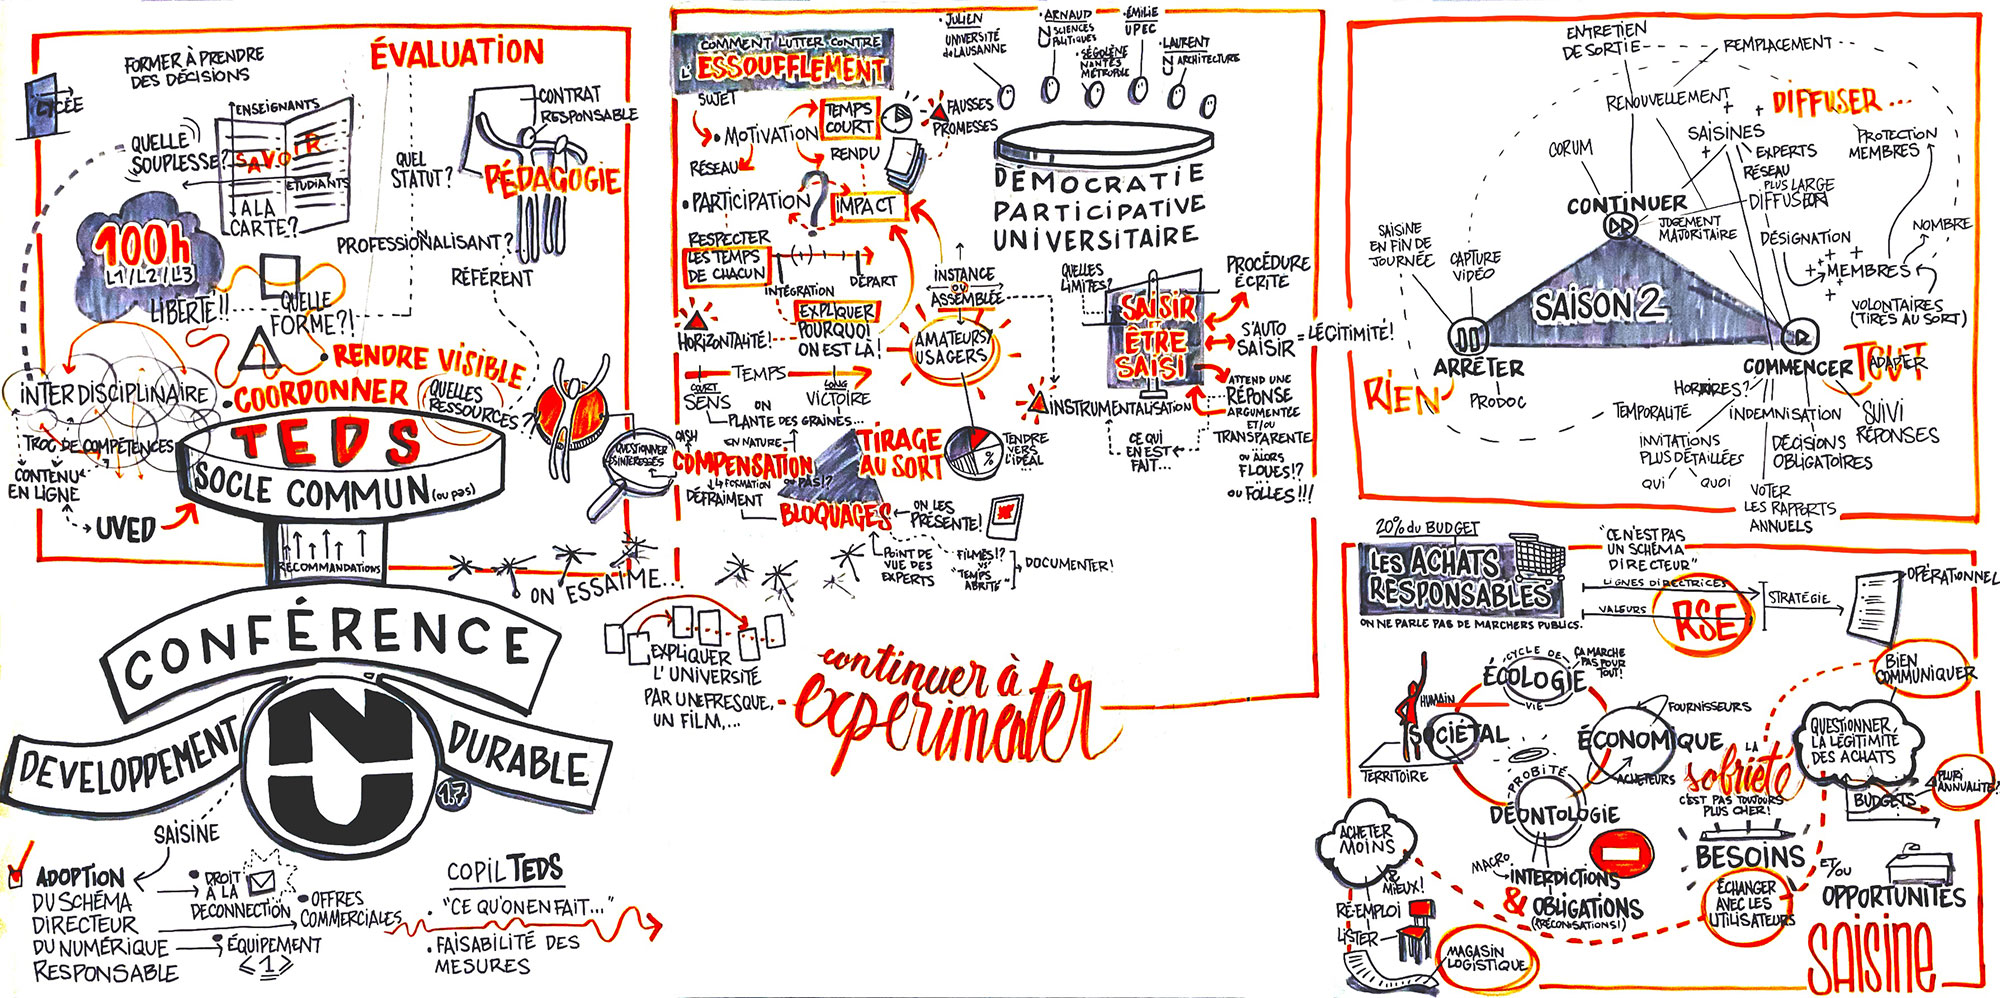 ÉVALUATION
FORMER À PRENDRE
DES DÉCISIONS
LYCÉE
ENSEIGNANTS
SAVOIR
ÉTUDIANTS
QUELLE
SOUPLESSE?
À LA
CARTE?
CONTRAT
RESPONSABLE
PÉDAGOGIE
QUEL
STATUT?
PROFESSIONNALISANT?
RÉFÉRENT
100h
L1/L2/L3
LIBERTÉ!!
QUELLE
FORME?!
• RENDRE VISIBLE
• COORDONNER
QUELLES
RESSOURCES?
INTERDISCIPLINAIRE
TROC DE COMPÉTENCES
CONTENU
EN LIGNE
UVED
TEDS
SOCLE COMMUN (ou pas)
RECOMMANDATIONS
QUESTIONNER
CONFÉRENCE
DEVELOPPEMENT
DURABLE
NU
17
SAISINE
ADOPTION
DU SCHÉMA
DIRECTEUR
DU NUMÉRIQUE
RESPONSABLE
• DROIT
À LA
DECONNECTION
• OFFRES
COMMERCIALES
• ÉQUIPEMENT
<1>
COPIL TEDS
• "CE QU'ON EN FAIT..."
• FAISABILITÉ DES
MESURES
COMMENT LUTTER CONTRE
L'ESSOUFFLEMENT
SUJET
• MOTIVATION
TEMPS
COURT
FAUSSES
PROMESSES
RÉSEAU
RENDU
• PARTICIPATION
?
IMPACT
RESPECTER
LES TEMPS
DE CHACUN
INTÉGRATION
DÉPART
HORIZONTALITÉ!
EXPLIQUER
POURQUOI
ON EST LÀ!
TEMPS
COURT
SENS
LONG
VICTOIRE
ON
PLANTE DES GRAINES...
EN NATURE
CASH
COMPENSATION
FORMATION
OU PAS!?
DÉFRAIMENT
TIRAGE
AU SORT
%
TENDRE
VERS
L'IDÉAL...
BLOQUAGES
ON LES
PRÉSENTE!
POINT DE
VUE DES
EXPERTS
FILMÉS!?
VS
"TEMPS
ABRITÉ"
DOCUMENTER!
ON ESSAIME...
EXPLIQUER
L'UNIVERSITÉ
PAR UNE FRESQUE,
UN FILM,...
continuer à
expérimenter
• JULIEN
UNIVERSITÉ
de LAUSANNE
• ARNAUD
SCIENCES
POLITIQUES
• SÉGOLÈNE
NANTES
MÉTROPOLE
• ÉMILIE
UPEC
• LAURENT
ARCHITECTURE
DÉMOCRATIE
PARTICIPATIVE
UNIVERSITAIRE
INSTANCE
OU
ASSEMBLÉE
AMATEURS/
USAGERS
QUELLES
LIMITES?
SAISIR
ET
ÊTRE
SAISI
PROCÉDURE
ÉCRITE
S'AUTO
SAISIR
= LÉGITIMITÉ!
ATTEND UNE
RÉPONSE
ARGUMENTÉE
ET/OU
TRANSPARENTE
OU ALORS
FLOUES!?
OU FOLLES!!!
INSTRUMENTALISATION
CE QUI
EN EST
FAIT...
ENTRETIEN
DE SORTIE
REMPLACEMENT
RENOUVELLEMENT
DIFFUSER...
SAISINES
CORUM
EXPERTS
RÉSEAU
PLUS LARGE
DIFFUSION
PROTECTION
MEMBRES
CONTINUER
JUGEMENT
MAJORITAIRE
SAISINE
EN FIN DE
JOURNÉE
CAPTURE
VIDÉO
DÉSIGNATION
MEMBRES
NOMBRE
VOLONTAIRES
(TIRÉS AU SORT)
SAISON 2
ARRÊTER
RIEN
PRODOC
COMMENCER
TOUT
ADAPTER
HORAIRES?
TEMPORALITÉ
INDEMNISATION
SUIVI
RÉPONSES
INVITATIONS
PLUS DÉTAILLÉES
QUI
QUOI
DÉCISIONS
OBLIGATOIRES
VOTER
LES RAPPORTS
ANNUELS
20% du BUDGET
LES ACHATS
RESPONSABLES
ON NE PARLE PAS DE MARCHERS PUBLICS.
"CE N'EST PAS
UN SCHÉMA
DIRECTEUR"
LIGNES DIRECTRICES
VALEURS
RSE
STRATÉGIE
OPÉRATIONNEL
BIEN
COMMUNIQUER
CYCLE DE
ÉCOLOGIE
VIE
ÇA MARCHE
PAS POUR
TOUT!
HUMAIN
SOCIÉTAL
TERRITOIRE
FOURNISSEURS
ÉCONOMIQUE
ACHETEURS
PROBITÉ
DÉONTOLOGIE
LA
sobriété
C'EST PAS TOUJOURS
PLUS CHER!
QUESTIONNER
LA LÉGITIMITÉ
DES ACHATS
BUDGETS
PLURI
ANNUALITÉ!
ACHETER
MOINS
& MIEUX!
RÉ-EMPLOI
LISTER
MAGASIN
LOGISTIQUE
MACRO
INTERDICTIONS
& OBLIGATIONS
(PRÉCONISATIONS!)
BESOINS
ET/OU
OPPORTUNITÉS
ÉCHANGER
AVEC LES
UTILISATEURS
SAISINE